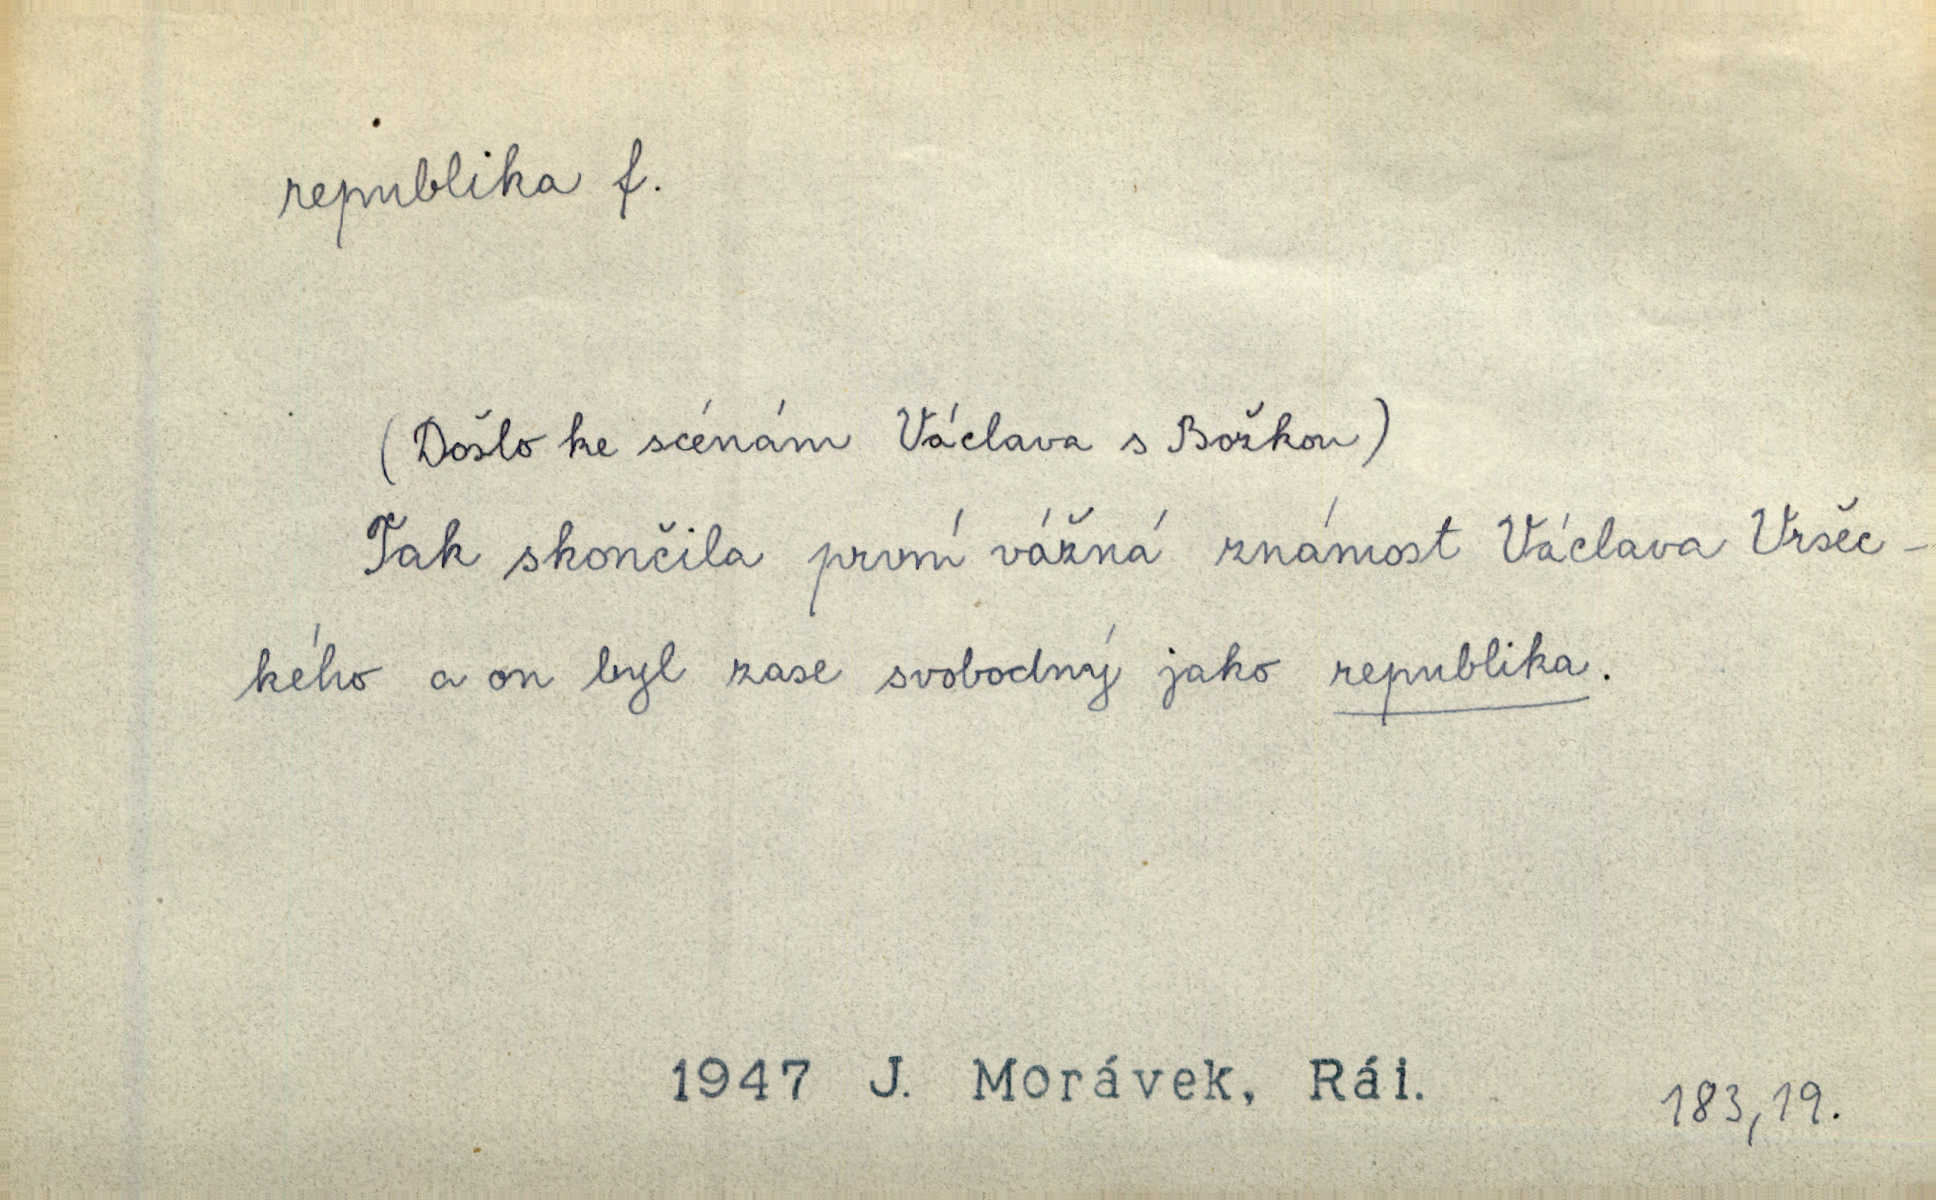 republika f.
(Došlo ke scénám Václava s Božkou)
Tak skončila první vážná známost Václava Vršéc-
kého a on byl zase svobodný jako republika.
1947 J. Morávek, Rái.
183,19.